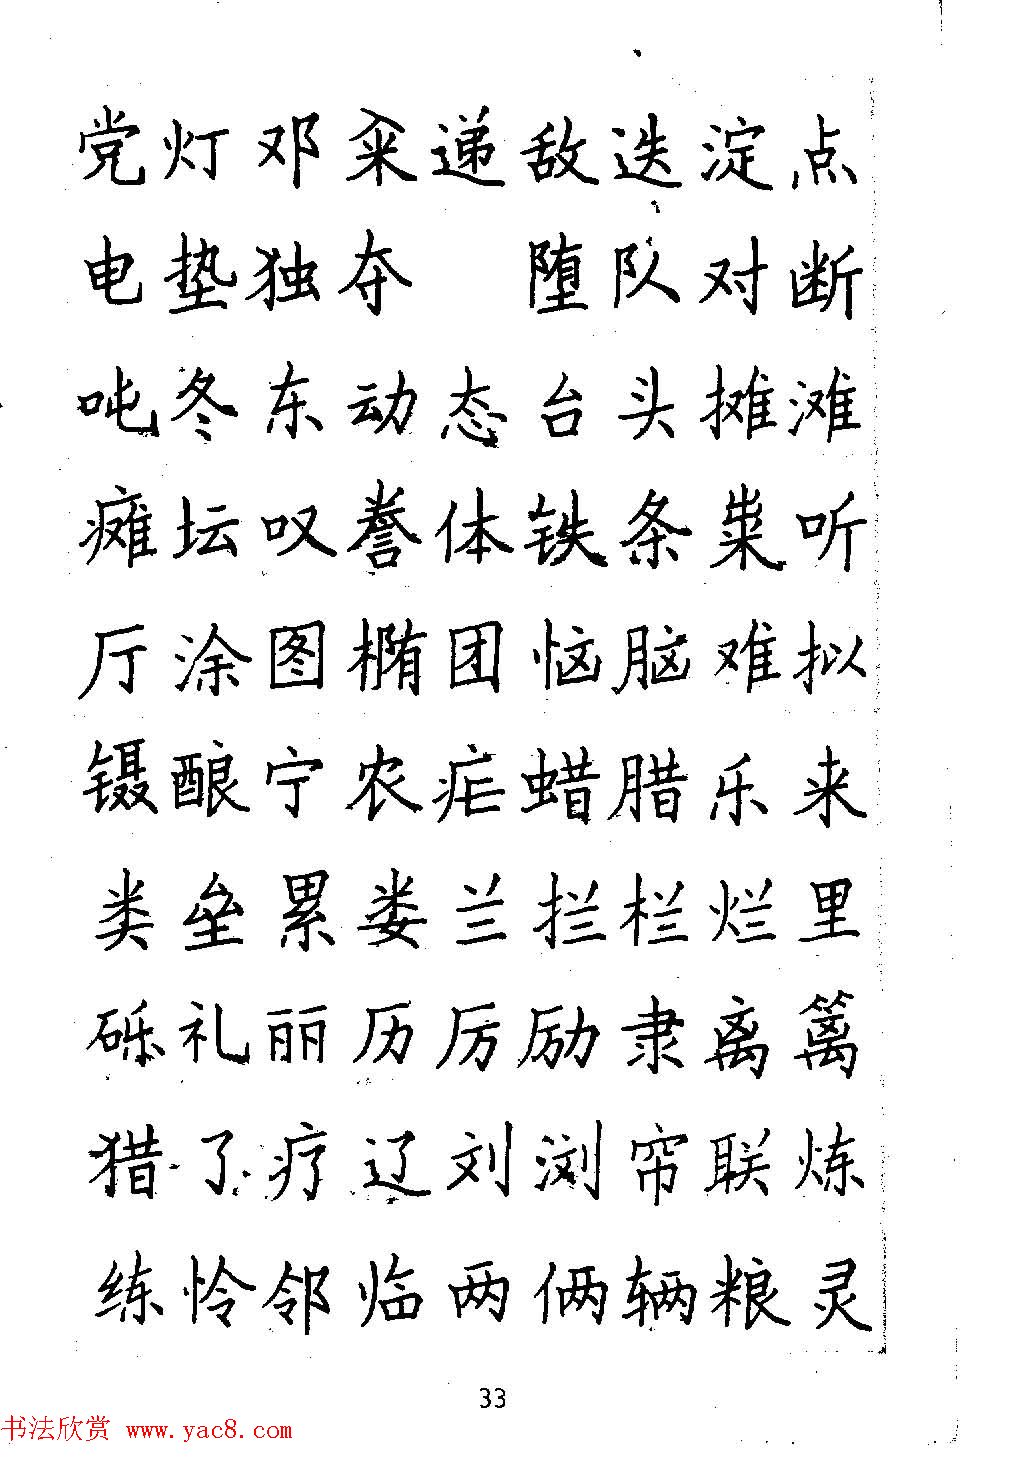 党灯邓籴递敌迭淀点
电垫独夺 堕队对断
吨冬东动态台头摊滩
瘫坛叹誊体铁条粜听
厅涂图椭团恼脑难拟
镊酿宁农疟蜡腊乐来
类垒累娄兰拦栏烂里
砾礼丽历厉励隶离篱
猎了疗辽刘浏帘联炼
练怜邻临两俩辆粮灵
33
书法欣赏 www.yac8.com